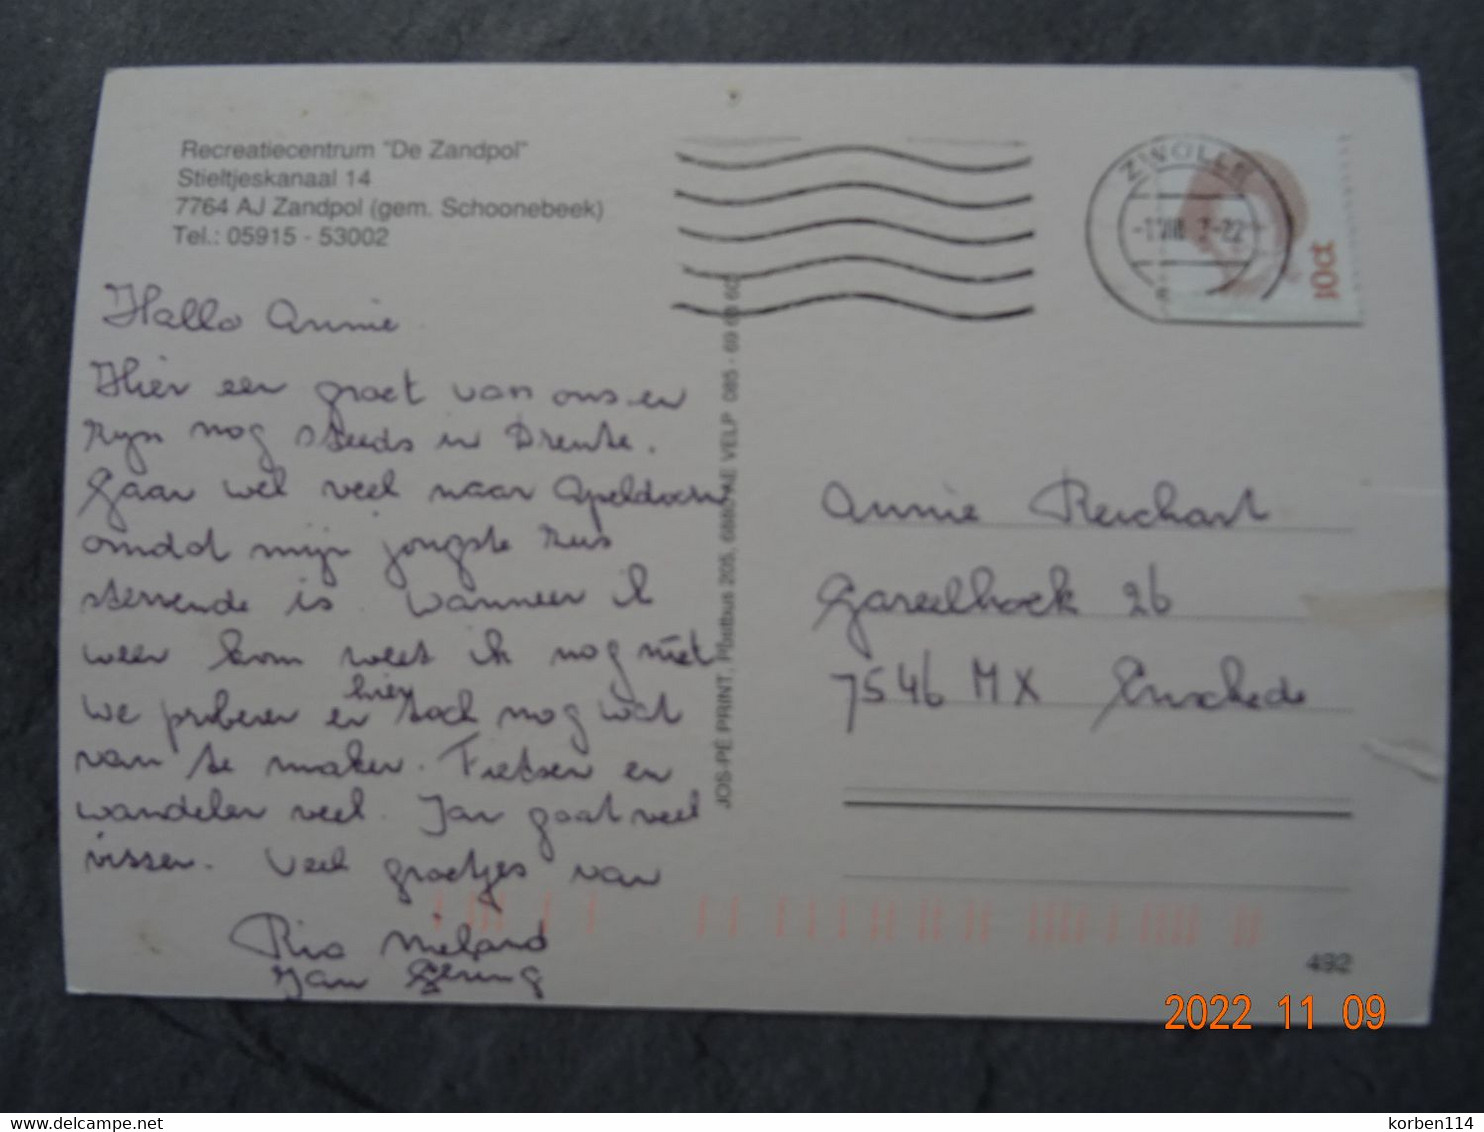 Recreatiecentrum "De Zandpol"
Stieltjeskanaal 14
7764 AJ Zandpol (gem. Schoonebeek)
Tel.: 05915 - 53002
ZWOLLE
10ct
Hallo Annie
Hier een groet van ons en
zijn nog steeds in Drente.
Gaan wel veel naar Apeldoorn
omdat mijn jongste zus
stervende is. Wanneer ik
weer kom weet ik nog niet
We proberen er hier toch nog wat
van te maken. Fietsen en
wandelen veel. Jan gaat veel
vissen. Veel groetjes van
Ria
Jan
JOS-PÉ PRINT, Postbus 205, 6880 AE VELP 085 -
Annie Reichart
26
7546 MX Enschede
492
2022 11 09
delcampe.net
korben114